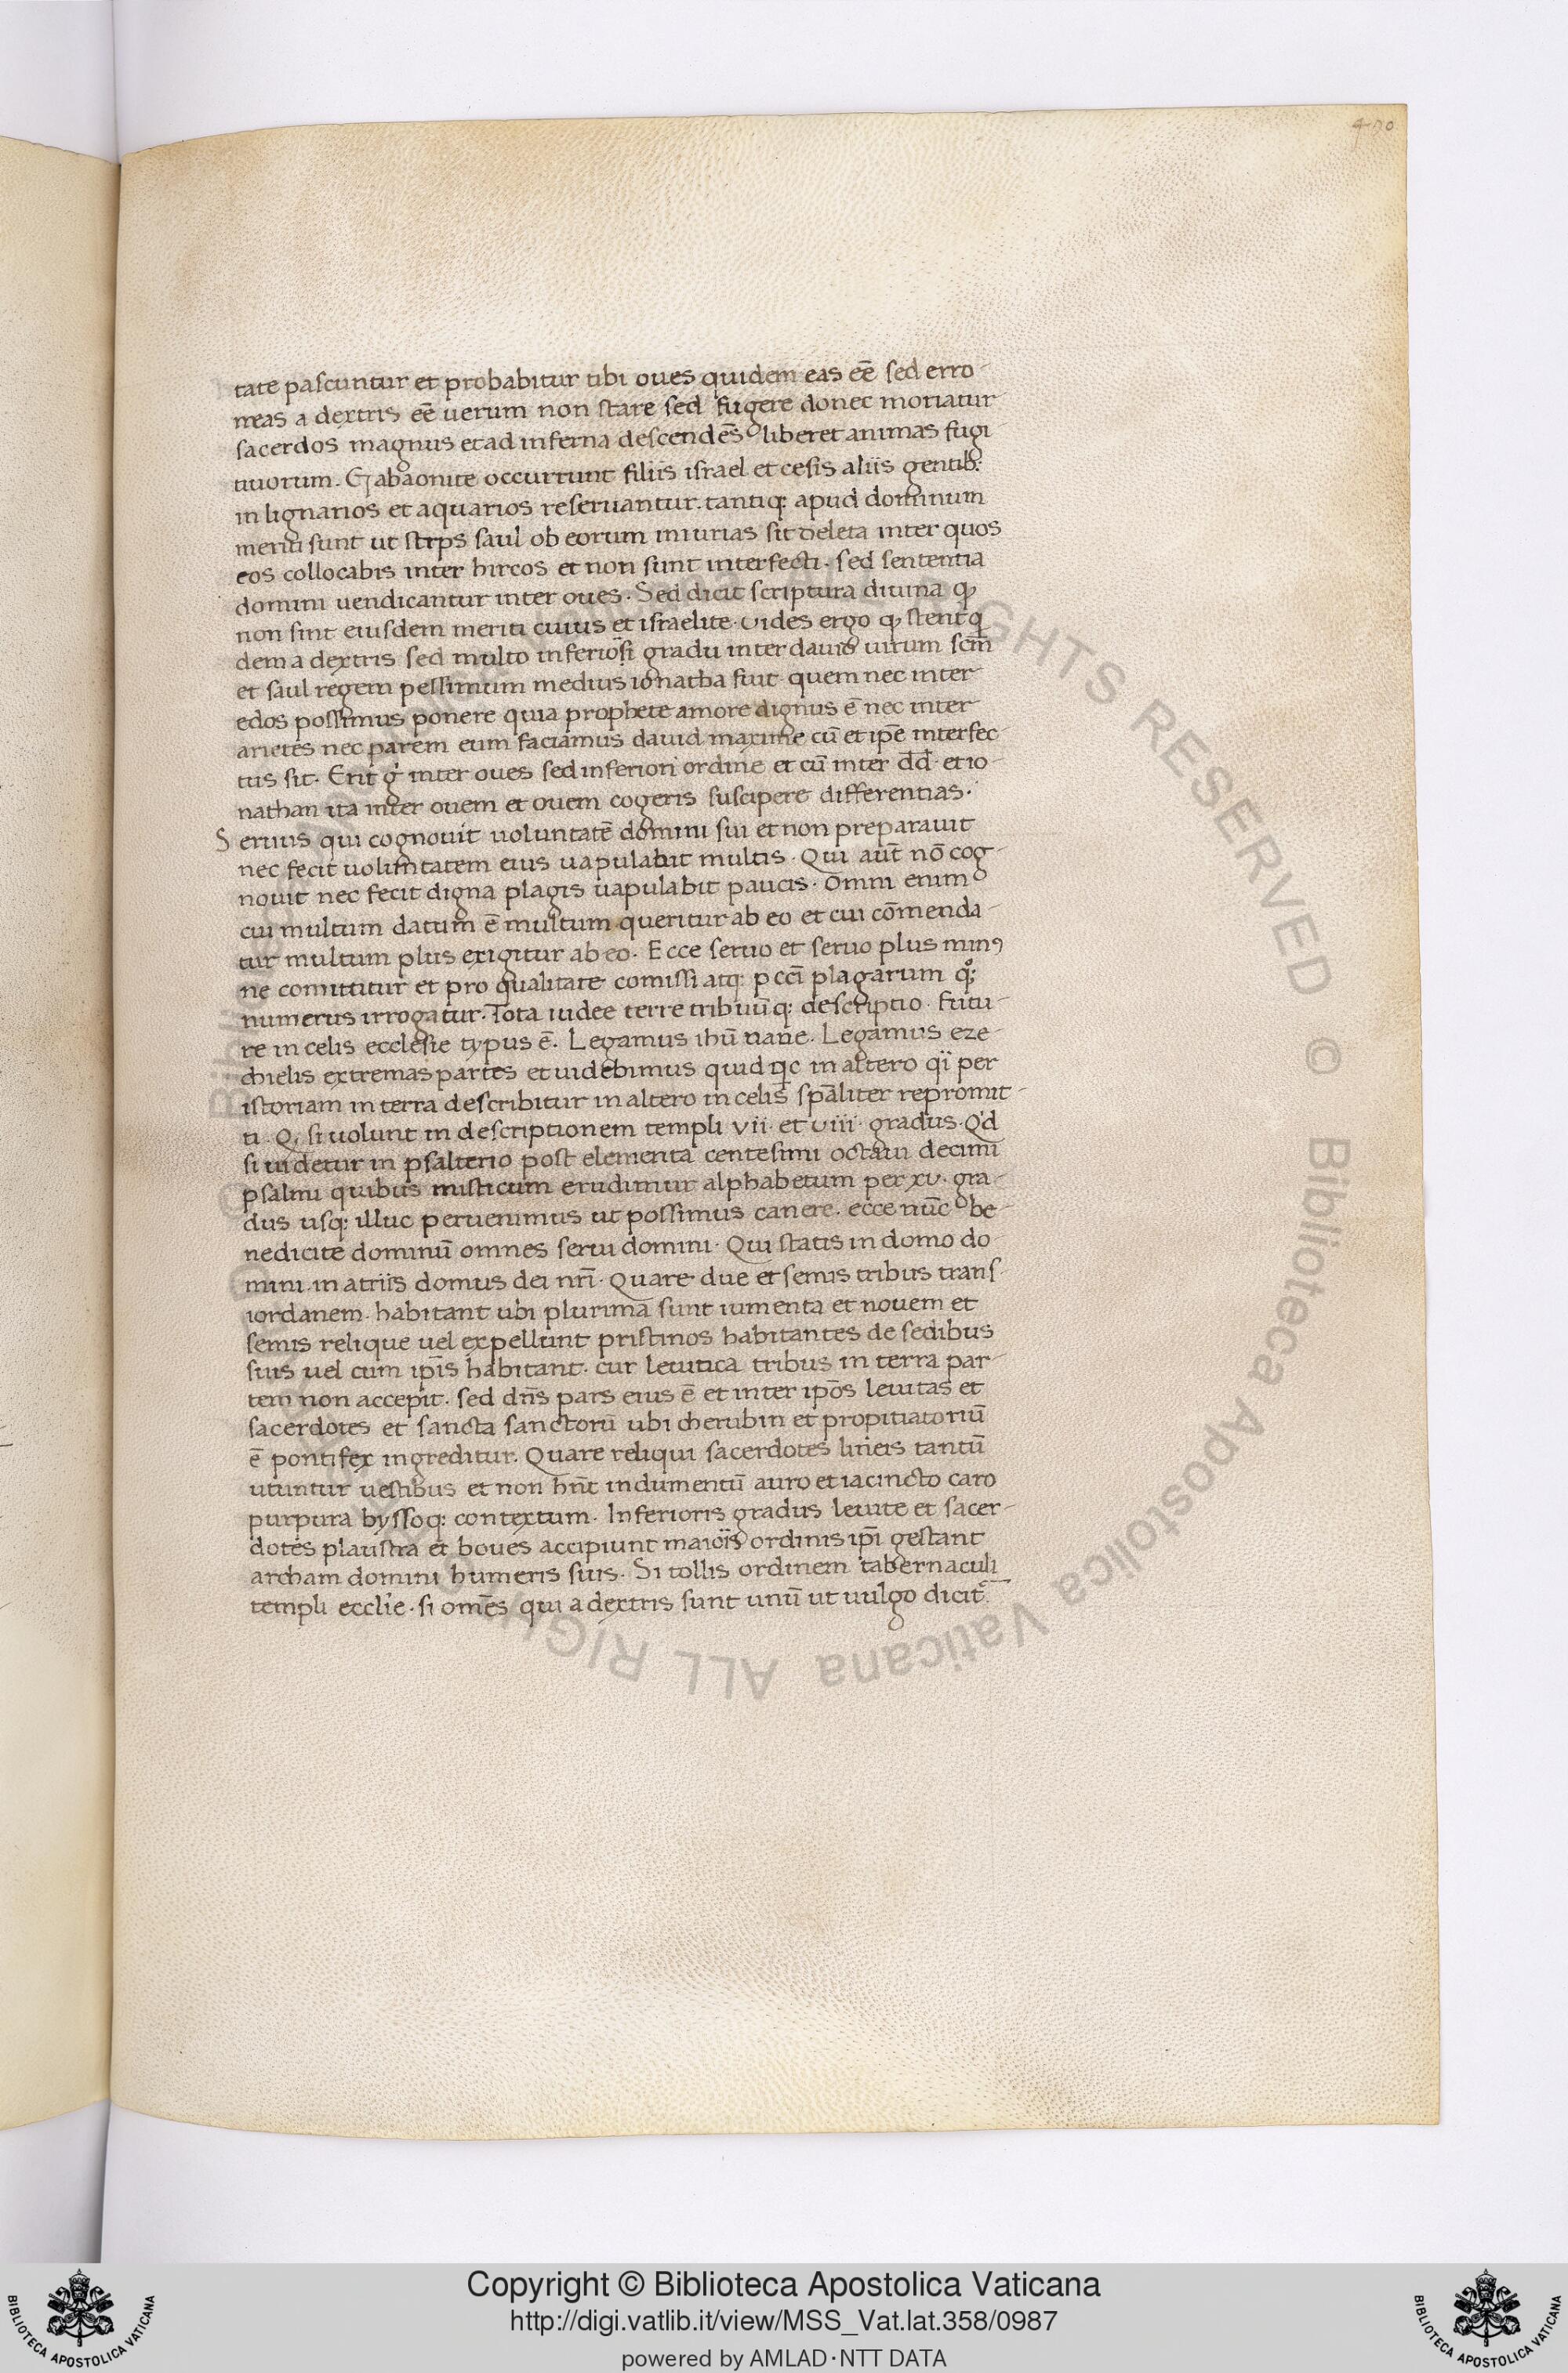 470
tate pascuntur et probabitur tibi oues quidem eas eē sed erro-
neas a dextris eē uerum non stare sed fugere donec moriatur
sacerdos magnus et ad inferna descendēs liberet animas fugi-
tiuorum. Gabaonite occurrunt filiis israel et cesis aliis gentib;
in lignarios et aquarios reseruantur. tantiq; apud dominum
meriti sunt ut strps saul ob eorum iniurias sit deleta inter quos
eos collocabis inter hircos et non sunt interfecti. sed sententia
domini uendicantur inter oues. Sed dicit scriptura diuina ꝙ
non sint eiusdem meriti cuius et israelite. uides ergo ꝙ stent q
dem a dextris sed multo inferiori gradu inter dauid uirum scm̄
et saul regem pessimum medius ionatha fuit quem nec inter
edos possimus ponere quia prophete amore dignus ē nec inter
arietes nec parem eum faciamus dauid maxime cū et ipē interfec-
tus sit. Erit g inter oues sed inferiori ordine et cū inter d̄d et io-
nathan ita inter ouem et ouem cogeris suscipere differentias.
Seruus qui cognouit uoluntatē domini sui et non preparauit
nec fecit uoluntatem eius uapulabit multis. Qui aut̄ nō cog-
nouit nec fecit digna plagis uapulabit paucis. Omni enim
cui multum datum ē multum queritur ab eo et cui cōmenda-
tur multum plus exigitur ab eo. Ecce seruo et seruo plus minꝰ
ne comittitur et pro qualitate comissi atq; pccī plagarum qͦ;
numerus irrogatur. Tota iudee terre tribuūq; descriptio futu-
re in celis ecclesie typus ē. Legamus ihū naue. Legamus eze-
chielis extremas partes et uidebimus quid qc in altero qi per
istoriam in terra describitur in altero in celis spāliter repromit-
ti. Q si uolunt in descriptionem templi vii. et viii. gradus. Qd
si uidetur in psalterio post elementa centesimi octaui decimi
psalmi quibus misticum erudimur alphabetum per xv. gra-
dus usq; illuc peruenimus ut possimus canere. ecce nūc be-
nedicite dominū omnes serui domini. Qui statis in domo do-
mini. in atriis domus dei nr̄i. Quare due et semis tribus trans-
iordanem. habitant ubi plurima sunt iumenta et nouem et
semis relique uel expellunt pristinos habitantes de sedibus
suis uel cum ip̄is habitant. cur leuitica tribus in terra par-
tem non accepit. sed dn̄s pars eius ē et inter ipōs leuitas et
sacerdotes et sancta sanctorū ubi cherubin et propitiatoriū
ē pontifex ingreditur. Quare reliqui sacerdotes lineis tantū
utuntur uestibus et non hn̄t indumentū auro et iacincto caro
purpura byssoq; contextum. Inferioris gradus leuite et sacer-
dotes plaustra et boues accipiunt maioris ordinis ip̄i gestant
archam domini humeris suis. Si tollis ordinem tabernaculi
templi ecclie. si omēs qui a dextris sunt unū ut uulgo dicit
© Biblioteca Apostolica Vaticana ALL RIGHTS RESERVED
Copyright © Biblioteca Apostolica Vaticana
http://digi.vatlib.it/view/MSS_Vat.lat.358/0987
powered by AMLAD·NTT DATA
BIBLIOTECA APOSTOLICA VATICANA
BIBLIOTECA APOSTOLICA VATICANA